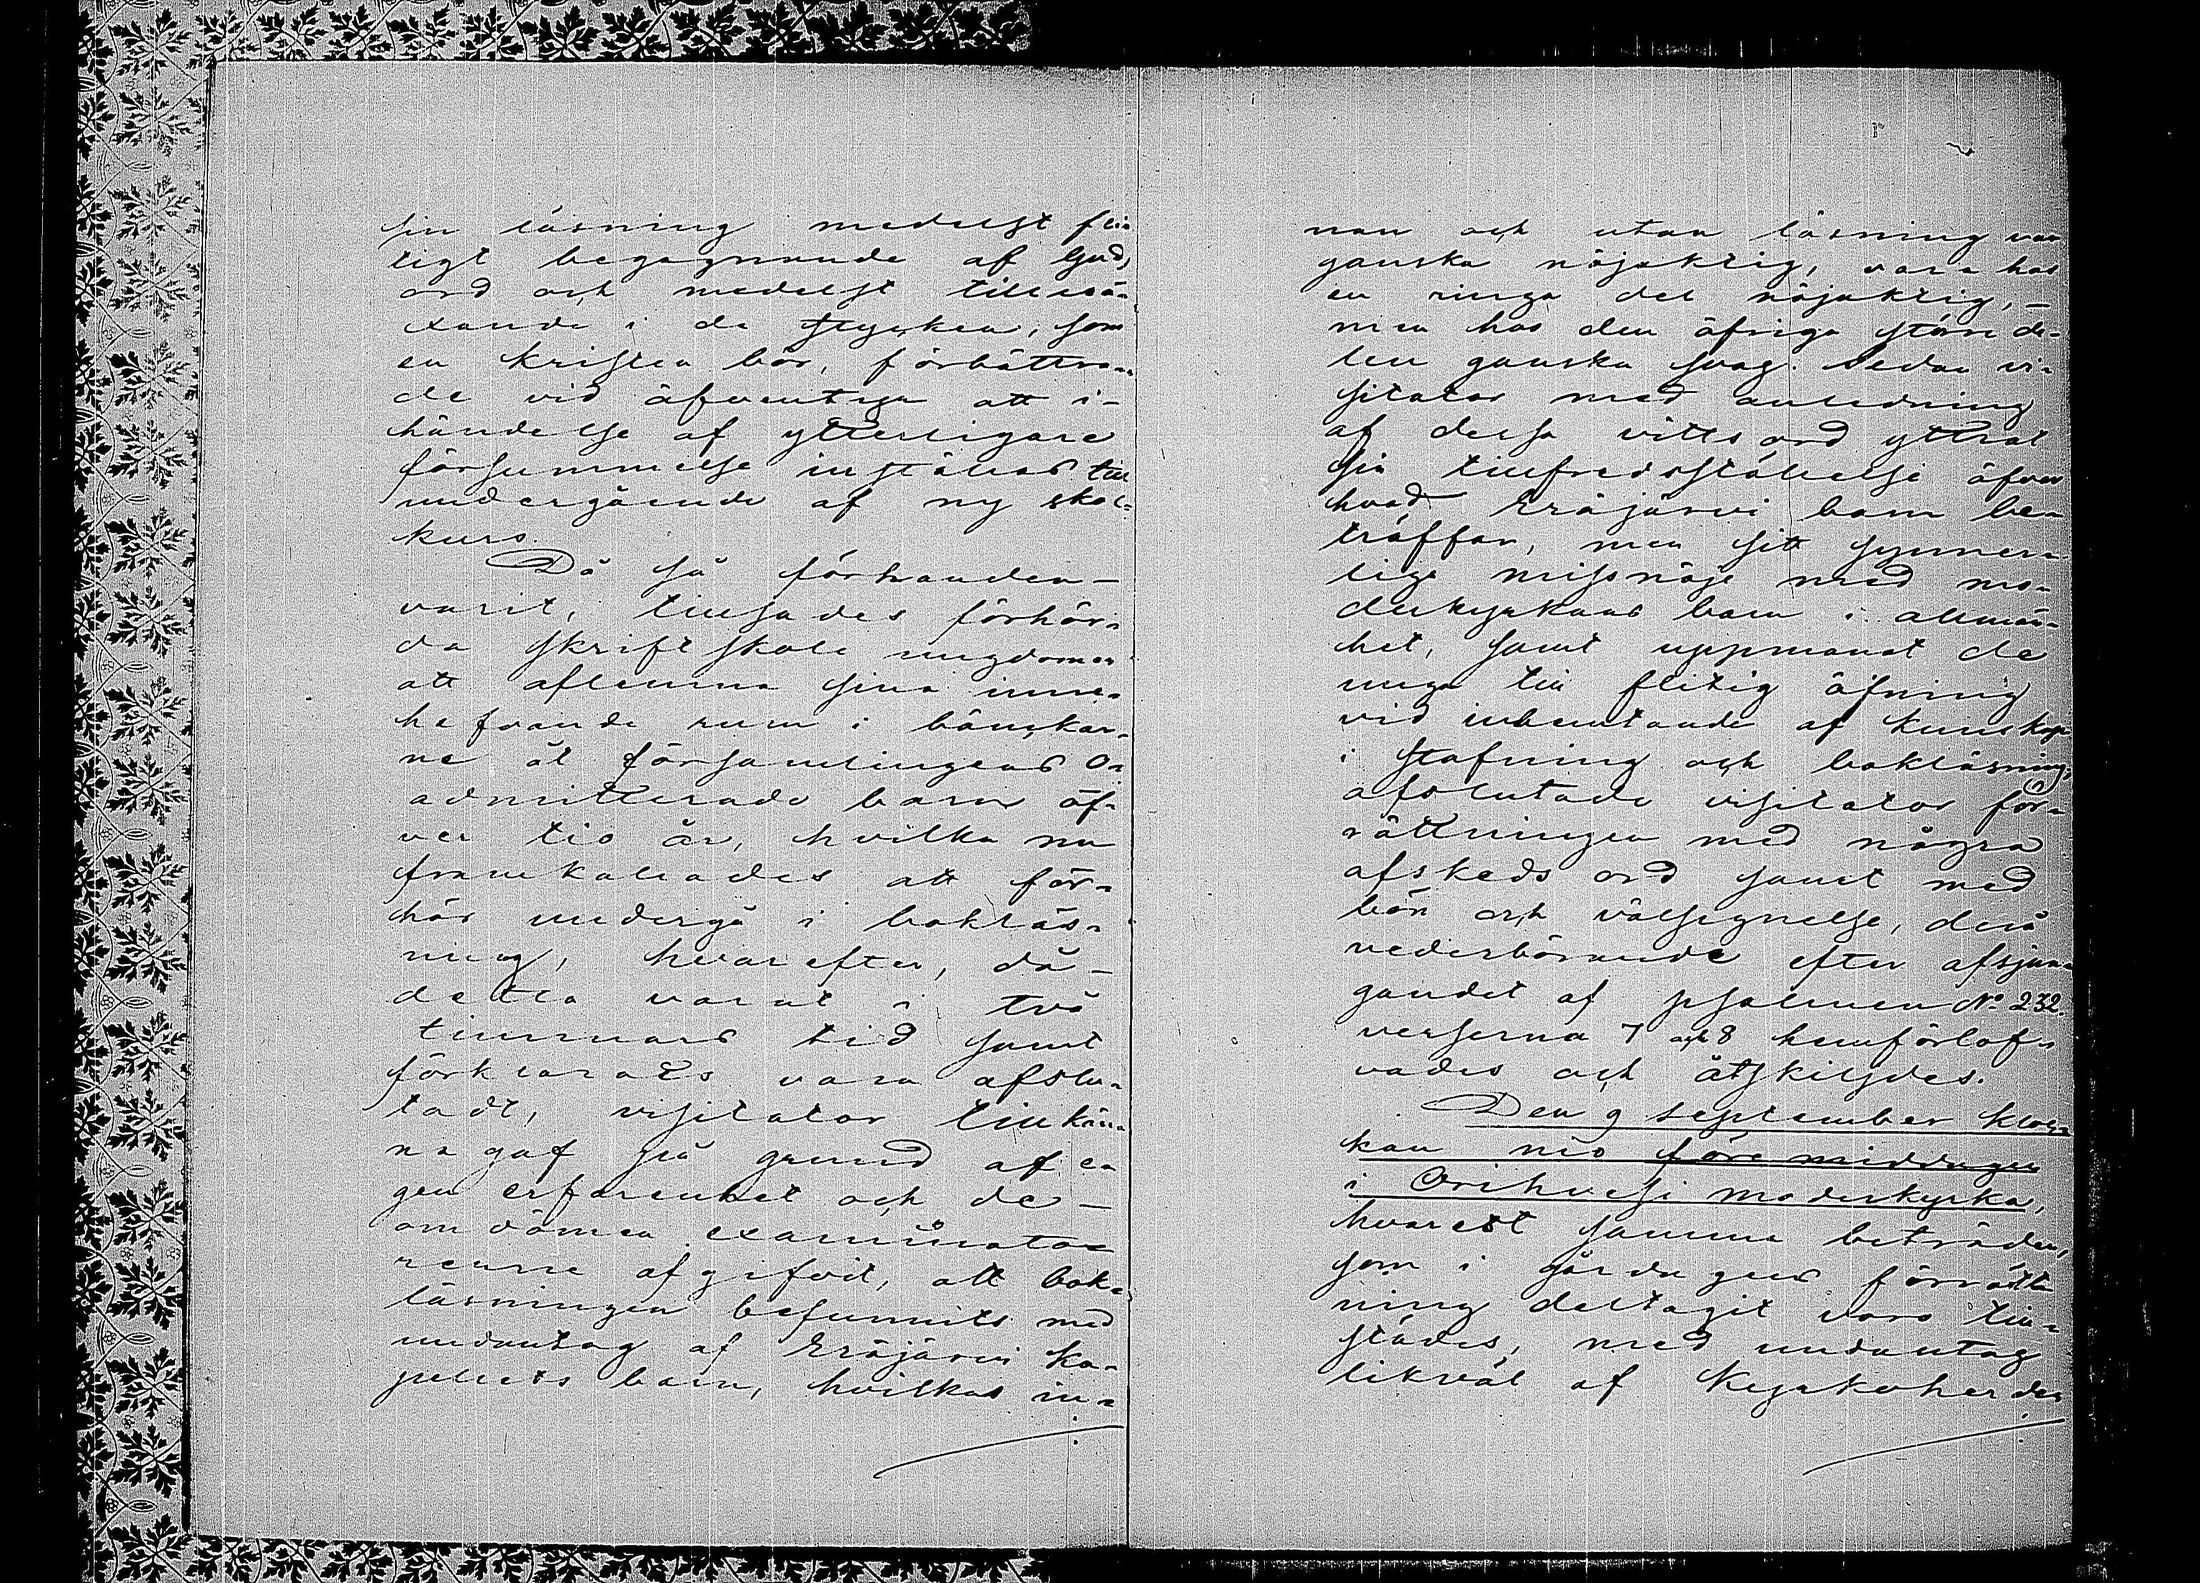 sin läsning medelst fli-
tigt begagnande af Guds
ord och medelst tillvä-
xande i de stycken, som
en kristen bör, förbättra-
de vid äfventyr att i-
händelse af ytterligare
försummelse inställas till
undergående af ny skol-
kurs.
Då så förhanden-
varit, tillsades förhör-
da skriftskole ungdomen
att aflemna sina inne-
hafvande rum i bänkar-
ne åt församlingens o-
admitterade barn öf-
ver tio år, hvilka nu
framkallades att för-
hör undergå i bokläs-
ning, hvarefter, då-
detta varat i två
timmars tid samt
förklarats vara afslu-
tadt, visitator tillkän-
na gaf på grund af e-
gen erfarenhet och de-
omdömen examinato-
rerne afgifvit, att bok-
läsningen befunnits med
undantag af Eräjärvi ka-
pellets barn, hvilkas in-
nan och utan läsning var
ganska nöjaktig, vara hos
en ringa del nöjaktig,-
men hos den öfriga större de-
len ganska svag. Sedan vi-
sitator med anledning
af dessa vittsord yttrat
sin tillfredsställelse öfver
hvad Eräjärvi barn be-
träffar, men sitt synner-
liga missnöje med mo-
derkyrkans barn i allmän-
het, samt uppmanat de
unga till flitig öfning
vid inhemtande af kunskap
i stafning och bokläsning,
afslutade visitator för-
rättningen med några
afskeds ord samt med
bön och välsignelse, derå
vederbörande efter afsjun-
gandet af psalmen No 232.
verserna 7 och 8 hemförlof-
vades och åtskiljdes.
Den 9 september kloc-
kan nio före middagen
i Orihvesi moderkyrka,
hvarest samma beträden,
som i går dagens förrätt-
ning deltagit voro till-
städes, med undantag
likväl af Kyrkoherden